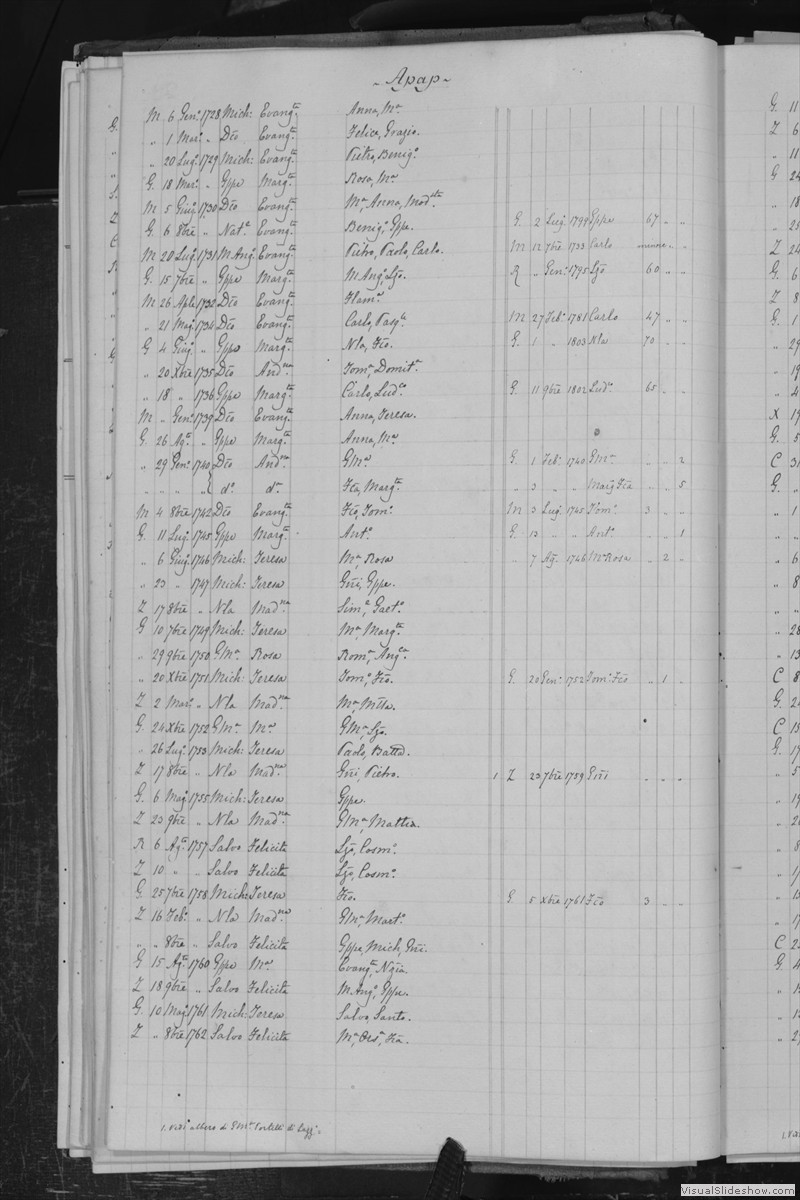 ~ Apap ~
M 6 Genº 1728 Mich: Evangta Anna, Ma
„ 1 Marº „ Dto Evangta Felice, Grazio.
„ 20 Lugº 1729 Mich: Evangta Pietro, Benigº
G. 18 Marº „ Gppe Margta Rosa, Ma
M 5 Giugº 1730 Dto Evangta Ma, Anna, Modsta
G 6 8bre „ Natle Evangta Benigº, Gppe. G. 2 Lugº 1799 Gppe 67 „ „
M 20 Lugº 1731 M Angº Evangta Pietro, Paolo, Carlo. M 12 7bre 1733 Carlo „ „
G. 15 7bre „ Gppe Margta M Angº, Ljo. R „ Genº 1795 Ljo 60 „ „
M 26 Aple 1732 Dto Evangta
„ 21 Magº 1734 Dto Evangta Carlo, Pasqle M 27 Febº 1781 Carlo 47 „ „
G 4 Giugº „ Gppe Margta Nla, Fco. G. 1 „ 1803 Nla 70 „ „
„ 20 Xbre 1735 Dto Andna Toma, Domita
„ 18 „ 1736 Gppe Margta Carlo, Ludco G. 11 9bre 1802 Ludº 65 „ „
M „ Genº 1739 Dto Evangta Anna, Teresa.
G. 26 Agto „ Gppe Margta Anna, Ma
„ 29 Genº 1740 Dto Andna GMa G. 1 Febº 1740 GMa „ „ 2
„ „ „ „ dº dª Fca, Margta „ 3 „ „ Marg Fca „ „ 5
M 4 8bre 1742 Dto Evangta Fco, Tomº M 3 Lugº 1745 Tomº 3 „ „
G. 11 Lugº 1745 Gppe Margta Antº G. 13 „ „ Antº „ „ 1
„ 6 Giugº 1746 Mich: Teresa Ma, Rosa „ 7 Agº 1746 Ma Rosa „ 2 „
„ 23 „ 1747 Mich: Teresa Gni, Gppe.
Z 17 8bre „ Nla Madna Sime, Gaetº
G 10 7bre 1749 Mich: Teresa Ma, Margta
„ 29 9bre 1750 GMa Rosa Roma, Anga
„ 20 Xbre 1751 Mich: Teresa Tomº, Fco. G. 20 Genº 1752 Tomº Fco „ 1 „
Z 2 Marº „ Nla Madna
G. 24 Xbre 1752 GMa Ma GMa, Ljo.
„ 26 Lugº 1753 Mich: Teresa Paolo, Batta.
Z 17 8bre „ Nla Madna Gni, Pietro. 1 Z 23 7bre 1759 Gni „ „ „
G. 6 Magº 1755 Mich: Teresa Gppe.
Z 23 9bre „ Nla Madna GMa, Mattia.
R 6 Agto 1757 Salvo Felicita Ljo, Cosmº
Z 10 „ „ Salvo Felicita Ljo, Cosmº
G 25 7bre 1758 Mich: Teresa Fco. G. 5 Xbre 1761 Fco 3 „ „
Z 16 Febº „ Nla Madna GMa, Martº
„ „ 8bre „ Salvo Felicita Gppe, Mich, Gni.
G 15 Agto 1760 Gppe Ma Evangta, Ngia.
Z 18 9bre „ Salvo Felicita M Angº, Gppe.
G. 10 Magº 1761 Mich: Teresa Salvo, Santo.
Z „ 8bre 1762 Salvo Felicita Ma, Orsa, Fca.
1. vedi albero di GMa
VisualSlideshow.com